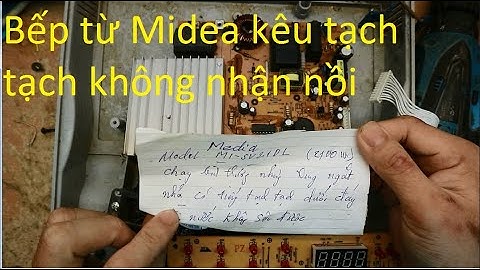 Bếp từ Midea kêu tạch
tạch không nhận nồi
Media
Model MI-SV21DL (2100W)
chạy bình thường nhưng
nhà có tiếng tạch tạch dưới đáy
nước không sôi được